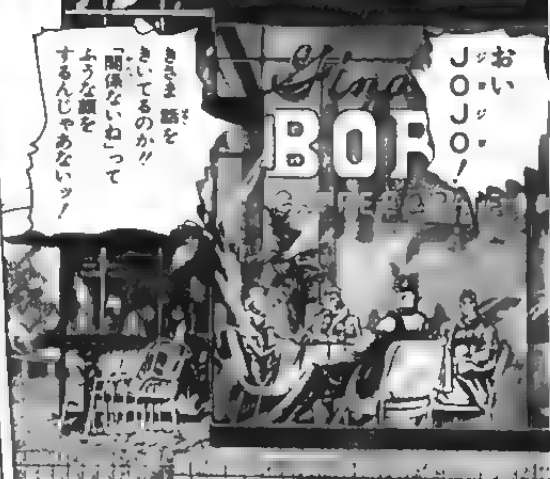 おい
JOJO！
ジョジョ
きさま 話を
きいてるのか!!
「関係ないね」って
ふうな顔を
するんじゃあないッ！
Gina
BOR